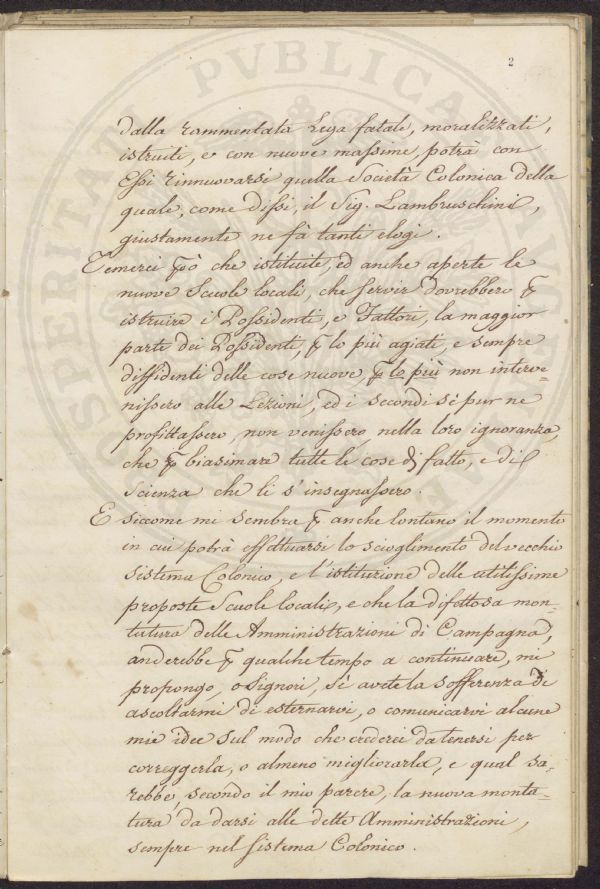 2
dalla rammentata Lega fatale, moralizzati,
istruiti, e con nuove massime, potrà con
Essi rinnuovarsi quella Società Colonica della
quale, come dissi, il Sig. Lambruschini,
giustamente ne fà tanti elogi.
Temerei però che istituite, ed anche aperte le
nuove Scuole locali, che servir dovrebbero p
istruire i Possidenti, e Fattori, la maggior
parte dei Possidenti, p lo più agiati, e sempre
diffidenti delle cose nuove, p lo più non interve=
nissero alle Lezioni, ed i secondi sé pur ne
profittassero, non venissero, nella loro ignoranza,
che p biasimare tutte le cose di fatto, e di
Scienza che li s'insegnassero.
E siccome mi sembra p anche lontano il momento
in cui potrà effettuarsi lo scioglimento del vecchio
sistema Colonico, e l'istituzione delle utilissime
proposte Scuole locali, e che la difettosa mon=
tatura delle Amministrazioni di Campagna,
anderebbe p qualche tempo a continuare, mi
propongo, o Signori, sé avete la sofferenza di
ascoltarmi di esternarvi, o comunicarvi alcune
mie idee sul modo che crederei da tenersi per
correggerla, o almeno migliorarla, e qual sa=
rebbe, secondo il mio parere, la nuova monta=
tura da darsi alle dette Amministrazioni,
sempre nel Sistema Colonico.
PROSPERITATI PVBLICAE AVGENDAE